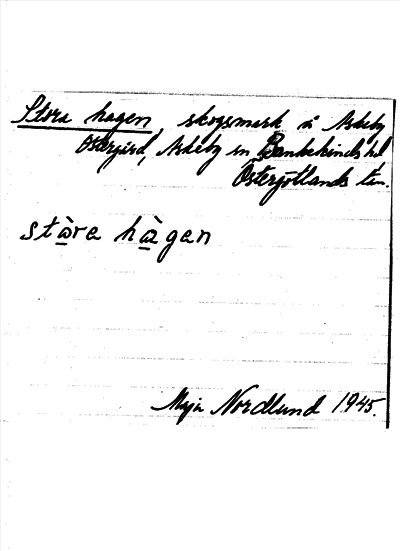 Stora hagen, skogsmark å Askeby
Östergård, Askeby sn Bankekinds hd
Östergötlands län.
stòra hàgen
Maja Nordlund 1945.